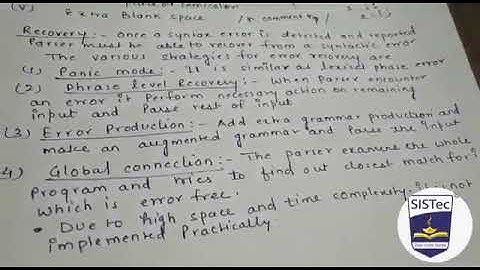 (V)
Extra Blank space
Recovery:- Once a syntax error is detected and reported
Parser must be able to recover from a syntactic error
The various strategies for error recovery are
(1) Panic mode:- It is similar as lexical phase error
(2) Phrase level Recovery:- When Parser encounter
an error it perform necessary action on remaining
input and Parse rest of input
(3) Error Production:- Add extra grammar production and
make an augmented grammar and Parse the input
4) Global connection:- The parser examine the whole
Program and tries to find out closest match for it
which is error free.
• Due to high space and time complexity it is not
implemented Practically.
SISTec